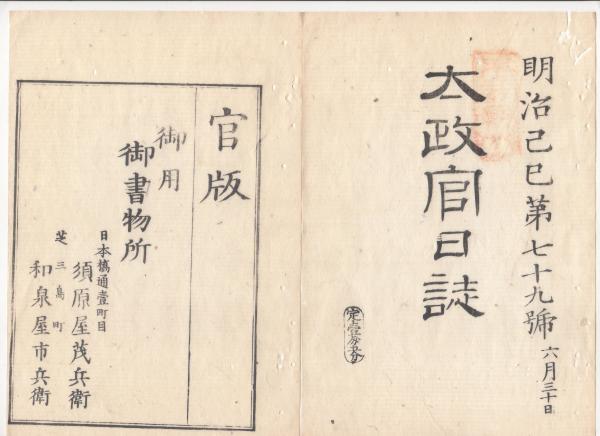 明治己巳第七十九號 六月三十日
太政官日誌
官版
御用
御書物所
日本橋通壹町目
須原屋茂兵衛
芝三島町
和泉屋市兵衛